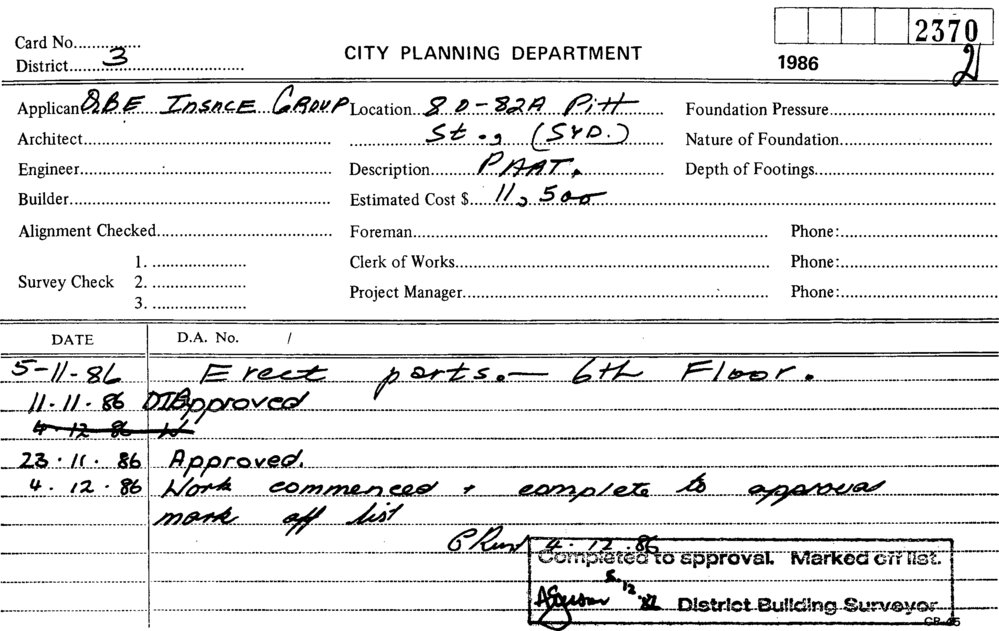 2370
2
Card No.
District 3
CITY PLANNING DEPARTMENT
1986
Applicant Q.B.E INSNCE GROUP Location 80-82A Pitt Foundation Pressure
Architect St., (SYD.) Nature of Foundation
Engineer Description PAAT. Depth of Footings
Builder Estimated Cost $ 11,500
Alignment Checked Foreman Phone:
1. Clerk of Works Phone:
Survey Check 2.
Project Manager Phone:
3.
DATE D.A. No. /
5-11-86 Erect parts. — 6th Floor.
11.11.86 approved
4.12.86 W
23.11.86 Approved.
4.12.86 Work commenced + complete to approval
mark off list
4.12.86
Completed to approval. Marked off list.
5.12.86
District Building Surveyor